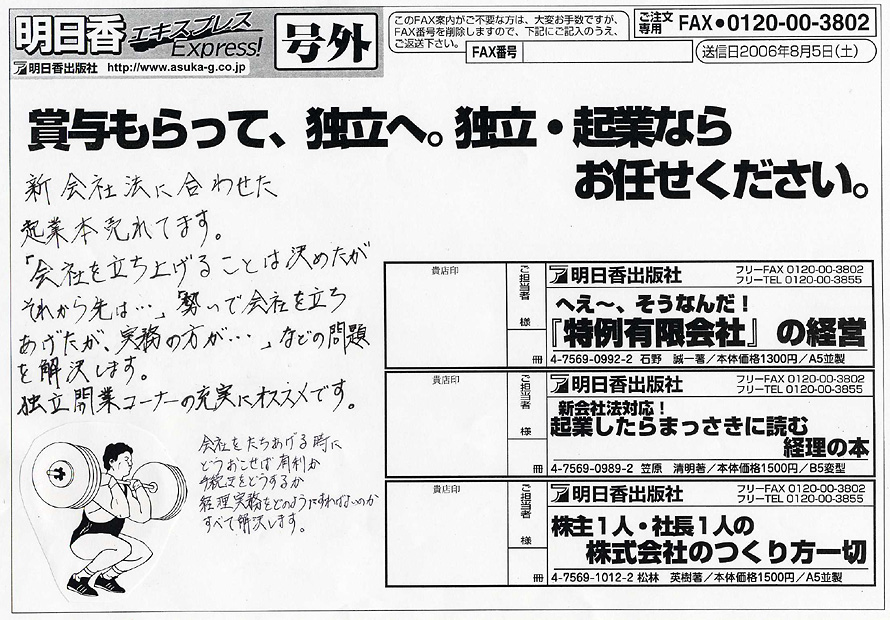 明日香エキスプレス
Express!
号外
明日香出版社 http://www.asuka-g.co.jp
このFAX案内がご不要な方は、大変お手数ですが、
FAX番号を削除しますので、下記にご記入のうえ、
ご返送下さい。
FAX番号
ご注文専用 FAX●0120-00-3802
送信日2006年8月5日(土)
賞与もらって、独立へ。独立・起業なら
お任せください。
新会社法に合わせた
起業本売れてます。
「会社を立ち上げることは決めたが
それから先は…」勢いで会社を立ち
あげたが、実務の方が…」などの問題
を解決します。
独立開業コーナーの充実にオススメです。
会社をたちあげる時に
どうおこせば有利か
手続きをどうするか
経理実務をどのようにすればいいのか
すべて解決します。
貴店印
ご担当者
様
冊
明日香出版社
フリーFAX 0120-00-3802
フリーTEL 0120-00-3855
へえ～、そうなんだ！
『特例有限会社』の経営
4-7569-0992-2 石野 誠一著／本体価格1300円／A5並製
貴店印
ご担当者
様
冊
明日香出版社
フリーFAX 0120-00-3802
フリーTEL 0120-00-3855
新会社法対応！
起業したらまっさきに読む
経理の本
4-7569-0989-2 笠原 清明著／本体価格1500円／B5変型
貴店印
ご担当者
様
冊
明日香出版社
フリーFAX 0120-00-3802
フリーTEL 0120-00-3855
株主1人・社長1人の
株式会社のつくり方一切
4-7569-1012-2 松林 英樹著／本体価格1500円／A5並製